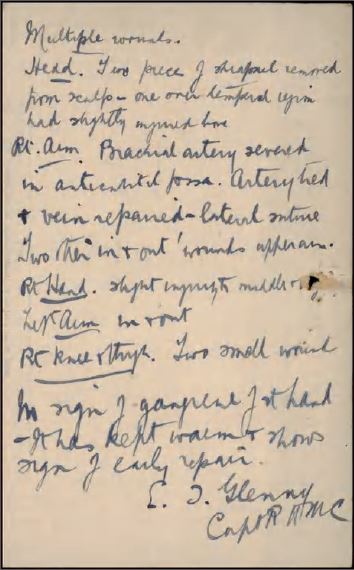 Multiple wounds.
Head. Two piece of shrapnel removed
from scalp - one over temporal region
had slightly injured bone
Rt. Arm Brachial artery severed
in antecubital fossa. Artery tied
+ vein repaired - lateral suture
Two other in + out wounds upper arm.
Rt Hand. slight injury to middle +
Left Arm in + out
Rt knee & thigh. Two small wound
No sign of gangrene of rt hand
- It has kept warm & shows
sign of early repair.
E. I. Glenny
Capt R A M C